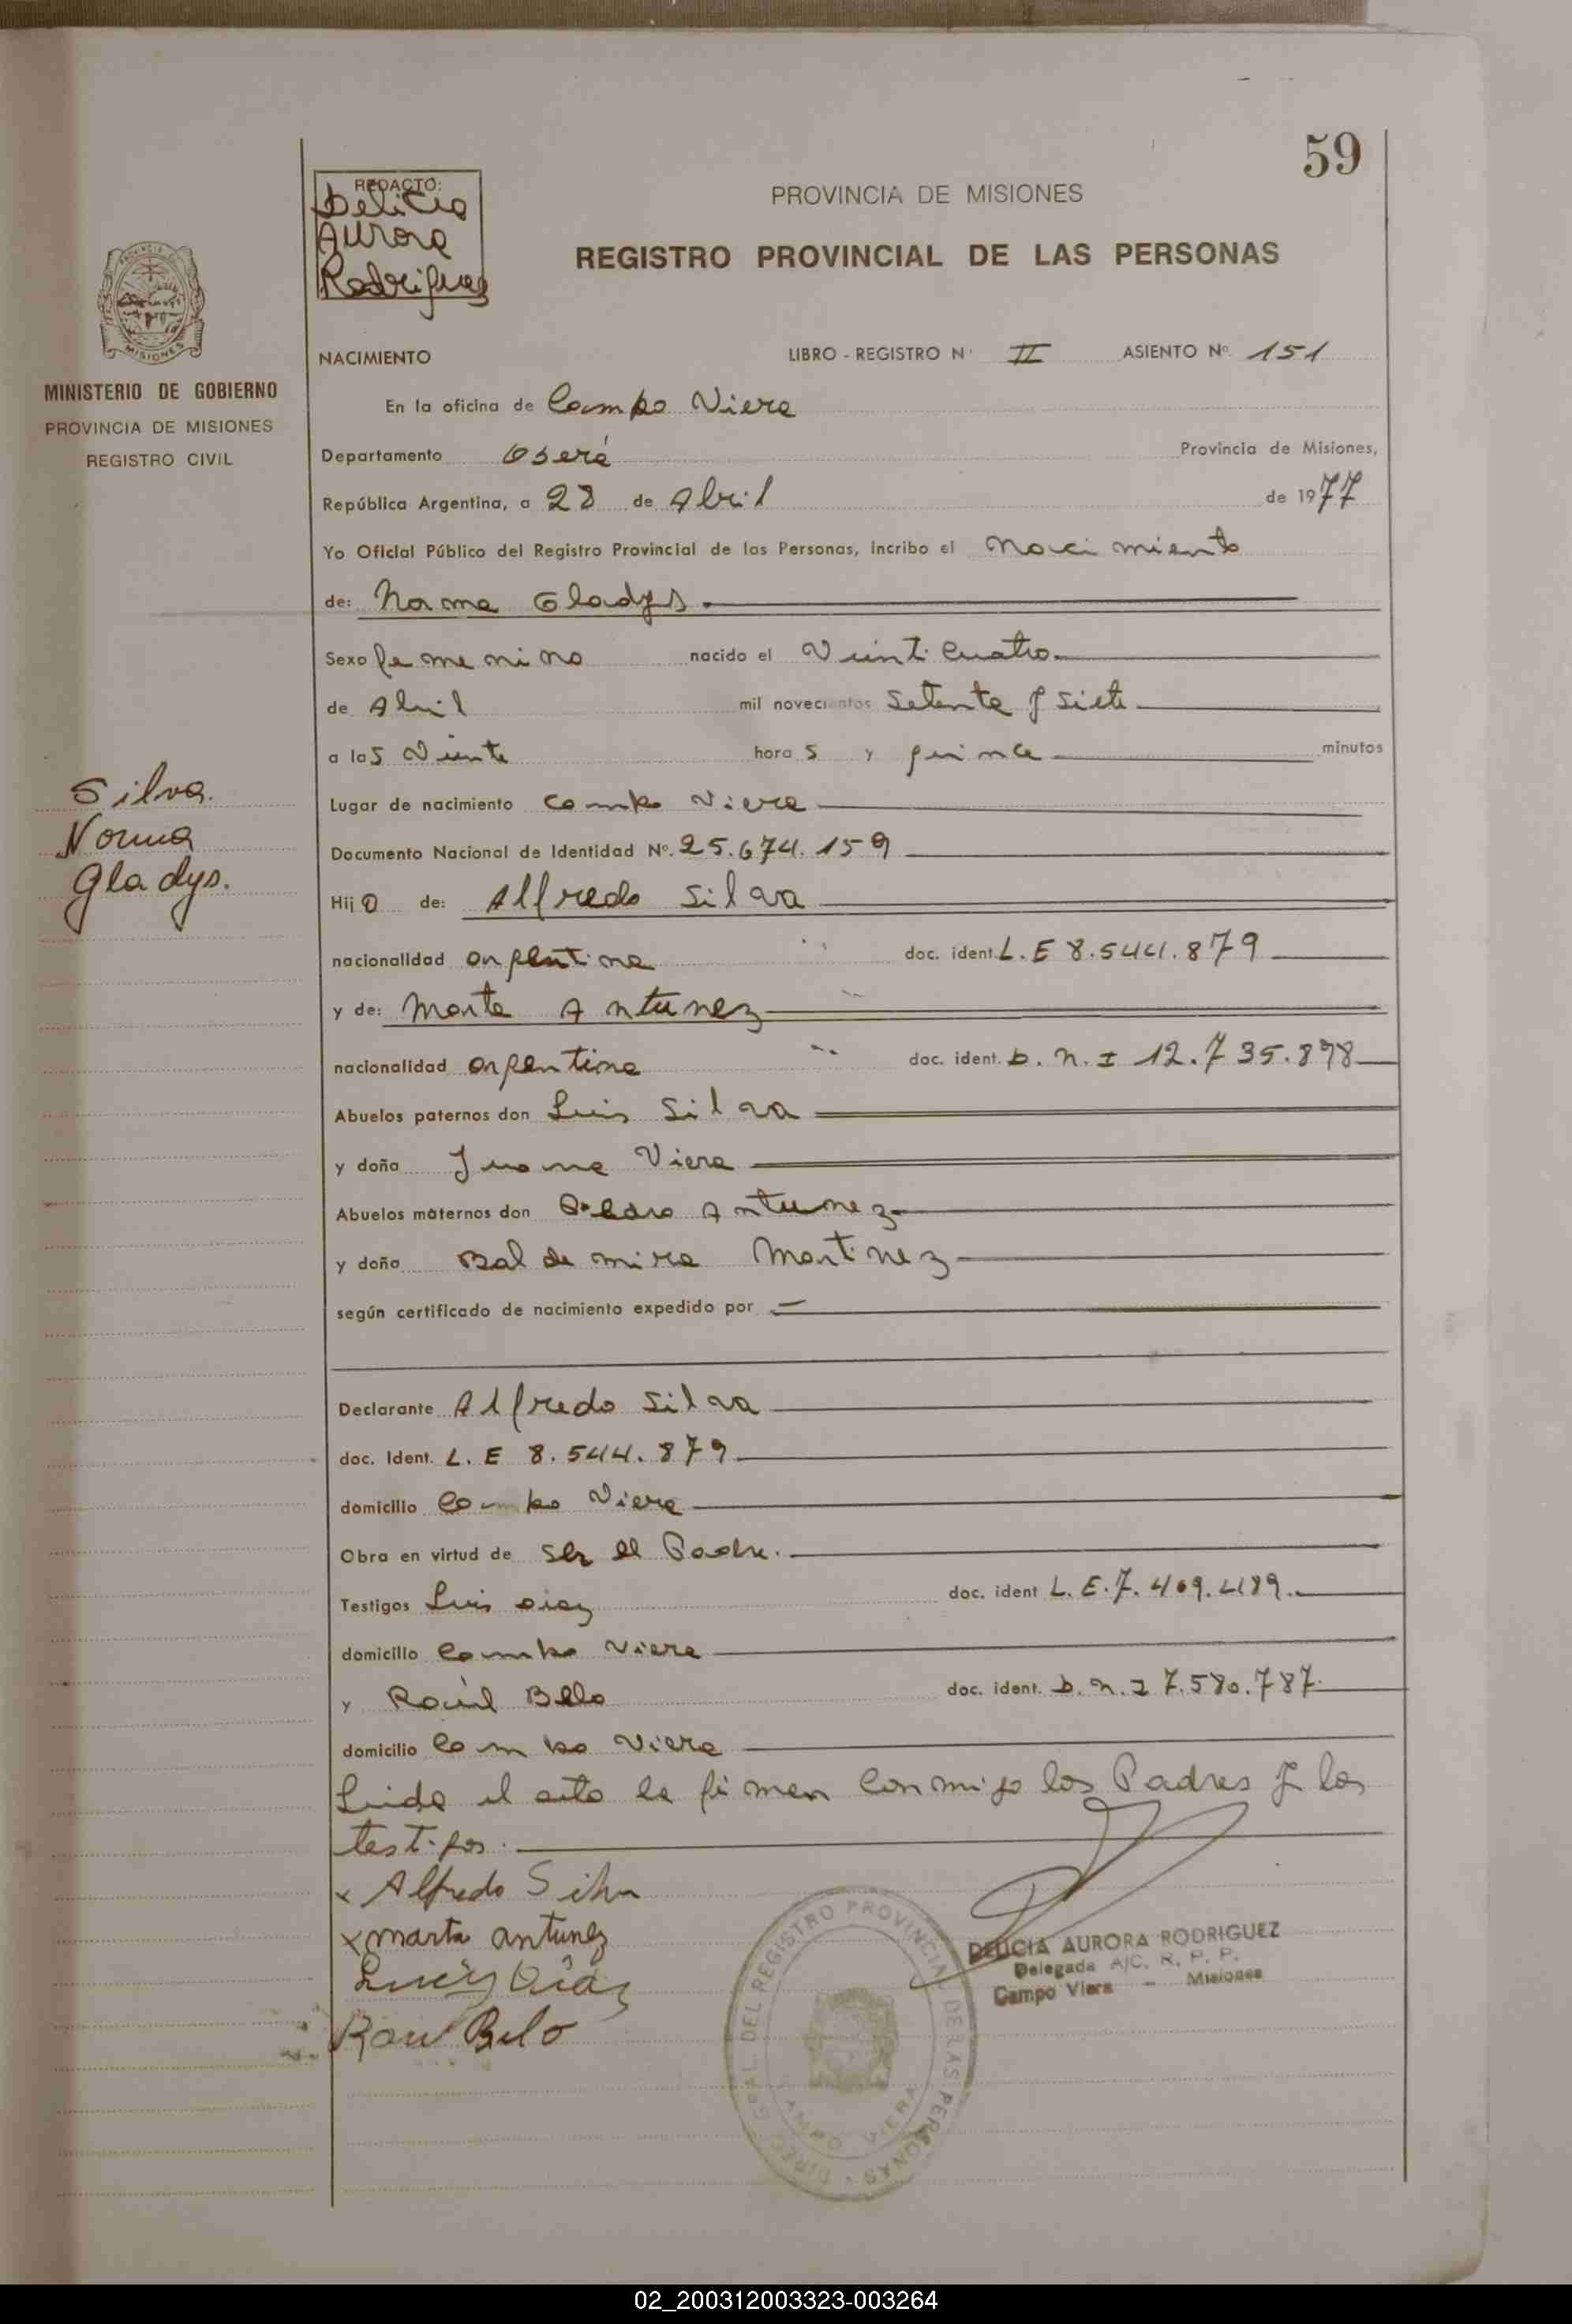 59
REDACTO:
Delicia
Aurora
Rodriguez
PROVINCIA DE MISIONES
REGISTRO PROVINCIAL DE LAS PERSONAS
MISIONES
MINISTERIO DE GOBIERNO
PROVINCIA DE MISIONES
REGISTRO CIVIL
NACIMIENTO LIBRO - REGISTRO Nº II ASIENTO Nº 151
En la oficina de Campo Viera
Departamento Oberá Provincia de Misiones,
República Argentina, a 28 de Abril de 1977
Yo Oficial Público del Registro Provincial de las Personas, incribo el Nacimiento
de: Norma Gladys.
Sexo femenino nacido el Veinticuatro
de Abril mil novecientos Setenta y Siete
a las Veinte horas y quince minutos
Silva.
Norma
Gladys.
Lugar de nacimiento Campo Viera
Documento Nacional de Identidad Nº. 25.674.159
Hija de: Alfredo Silva
nacionalidad argentina doc. ident. L.E 8.544.879
y de: Marta Antunez
nacionalidad argentina doc. ident. D.N.I 12.735.898
Abuelos paternos don Luis Silva
y doña Juana Viera
Abuelos maternos don Pedro Antunez
y doña Baldemira Martinez
según certificado de nacimiento expedido por —
Declarante Alfredo Silva
doc. Ident. L.E 8.544.879
domicilio Campo Viera
Obra en virtud de ser el Padre.
Testigos Luis Diaz doc. ident L.E.7.409.489.
domicilio Campo Viera
y Raúl Bello doc. ident. D.N.I 7.580.787.
domicilio Campo Viera
Leida el acta la firman conmigo los Padres y los
testigos.
x Alfredo Silva
x marta antunez
Luis Diaz
Raul Belo
DIREC. GRAL. DEL REGISTRO PROVINCIAL DE LAS PERSONAS
CAMPO VIERA
DELICIA AURORA RODRIGUEZ
Delegada A/C. R. P. P.
Campo Viera - Misiones
02_200312003323-003264